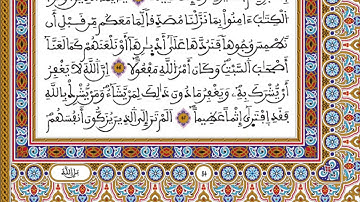 الكتب ءامنوا بما نزلنا مصدقا لما معكم من قبل أن
نطمس وجوها فنردها على أدبارها أو نلعنهم كما لعنا
أصحب السبت وكان أمر الله مفعولا إن الله لا يغفر
أن يشرك به ويغفر ما دون ذلك لمن يشاء ومن يشرك بالله
فقد افترى إثما عظيما ألم تر إلى الذين يزكون أنفسهم